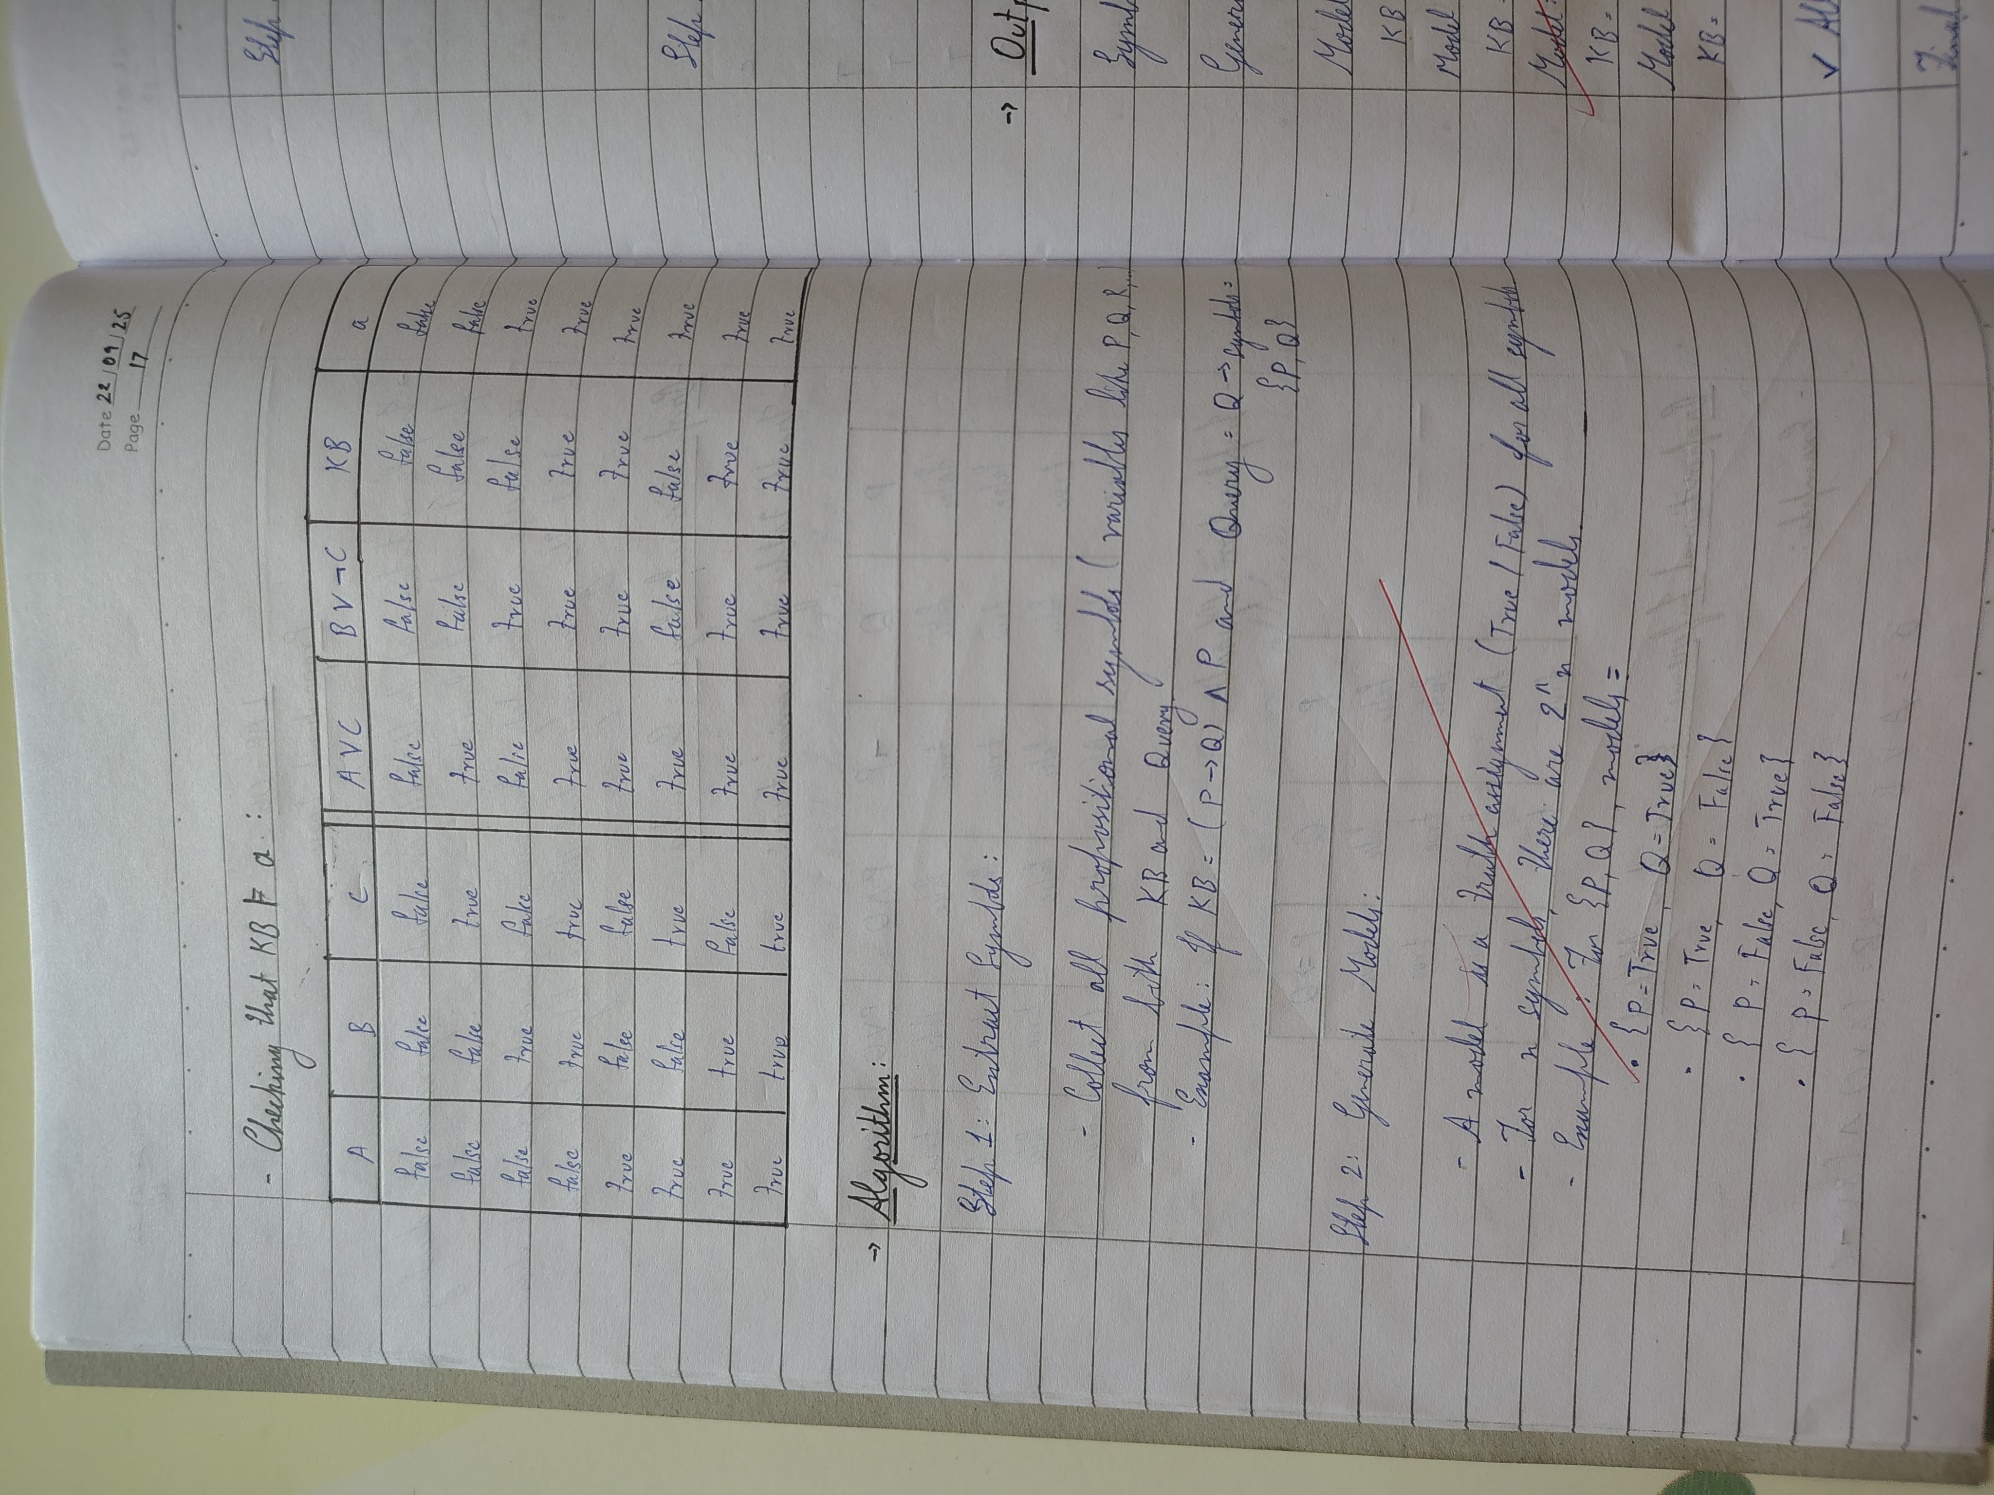 Date 22/09/25
Page 17
- Checking that KB ⊨ a :
A B C AVC BV¬C KB a
false false false false false false false
false false true true false false false
false true false false true false true
false true true true true true true
true false false true true true true
true false true true false false true
true true false true true true true
true true true true true true true
→ Algorithm:
Step 1: Extract Symbols:
- Collect all propositional symbols (variables like P, Q, R,
from both KB and Query
- Example: If KB = (P→Q) ∧ P and Query = Q → symbols =
{P, Q}
Step 2: Generate Models:
- A model is a truth assignment (True / False) for all symbols
- For n symbols, there are 2^n n models
- Example: For {P, Q}, models =
• {P = True, Q = True}
• {P = True, Q = False}
• {P = False, Q = True}
• {P = False, Q = False}
Step
Step
→ Outp
Symb
Gener
Model
KB
Model
KB =
Model:
KB =
Model
KB =
✓ Al
Final